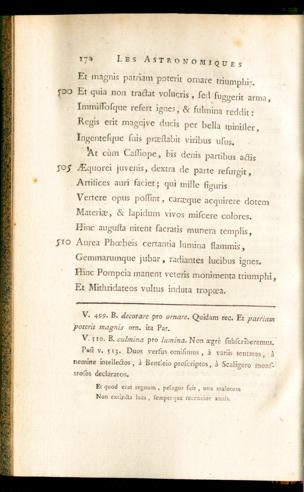 172 LES ASTRONOMIQUES
Et magnis patriam poterit ornare triumphis.
500 Et quia non tractat volucris, sed suggerit arma,
Immissosque refert ignes, & fulmina reddit:
Regis erit magnive ducis per bella minister,
Ingentesque suis præstabit viribus usus.
At cùm Cassiope, bis denis partibus actis
505 Æquorei juvenis, dextra de parte resurgit,
Artifices auri faciet; qui mille figuris
Vertere opus possint, caræque acquirere dotem
Materiæ, & lapidum vivos miscere colores.
Hinc augusta nitent sacratis munera templis,
510 Aurea Phœbeis certantia lumina flammis,
Gemmarumque jubar, radiantes lucibus ignes.
Hinc Pompeia manent veteris monimenta triumphi,
Et Mithridateos vultus induta tropæa.
V. 499. B. decorare pro ornare. Quidam rec. Et patriam
poterit magnis orn. ita Par.
V. 510. B. culmina pro lumina. Non ægrè subscriberemus.
Post v. 513. Duos versus omisimus, à variis tentatos, à
nemine intellectos, à Bentleio proscriptos, à Scaligero mons-
trosos declaratos.
Et quod erat regnum, pelagus fuit, una malorum
Non extincta lues, semperque recentior annis.